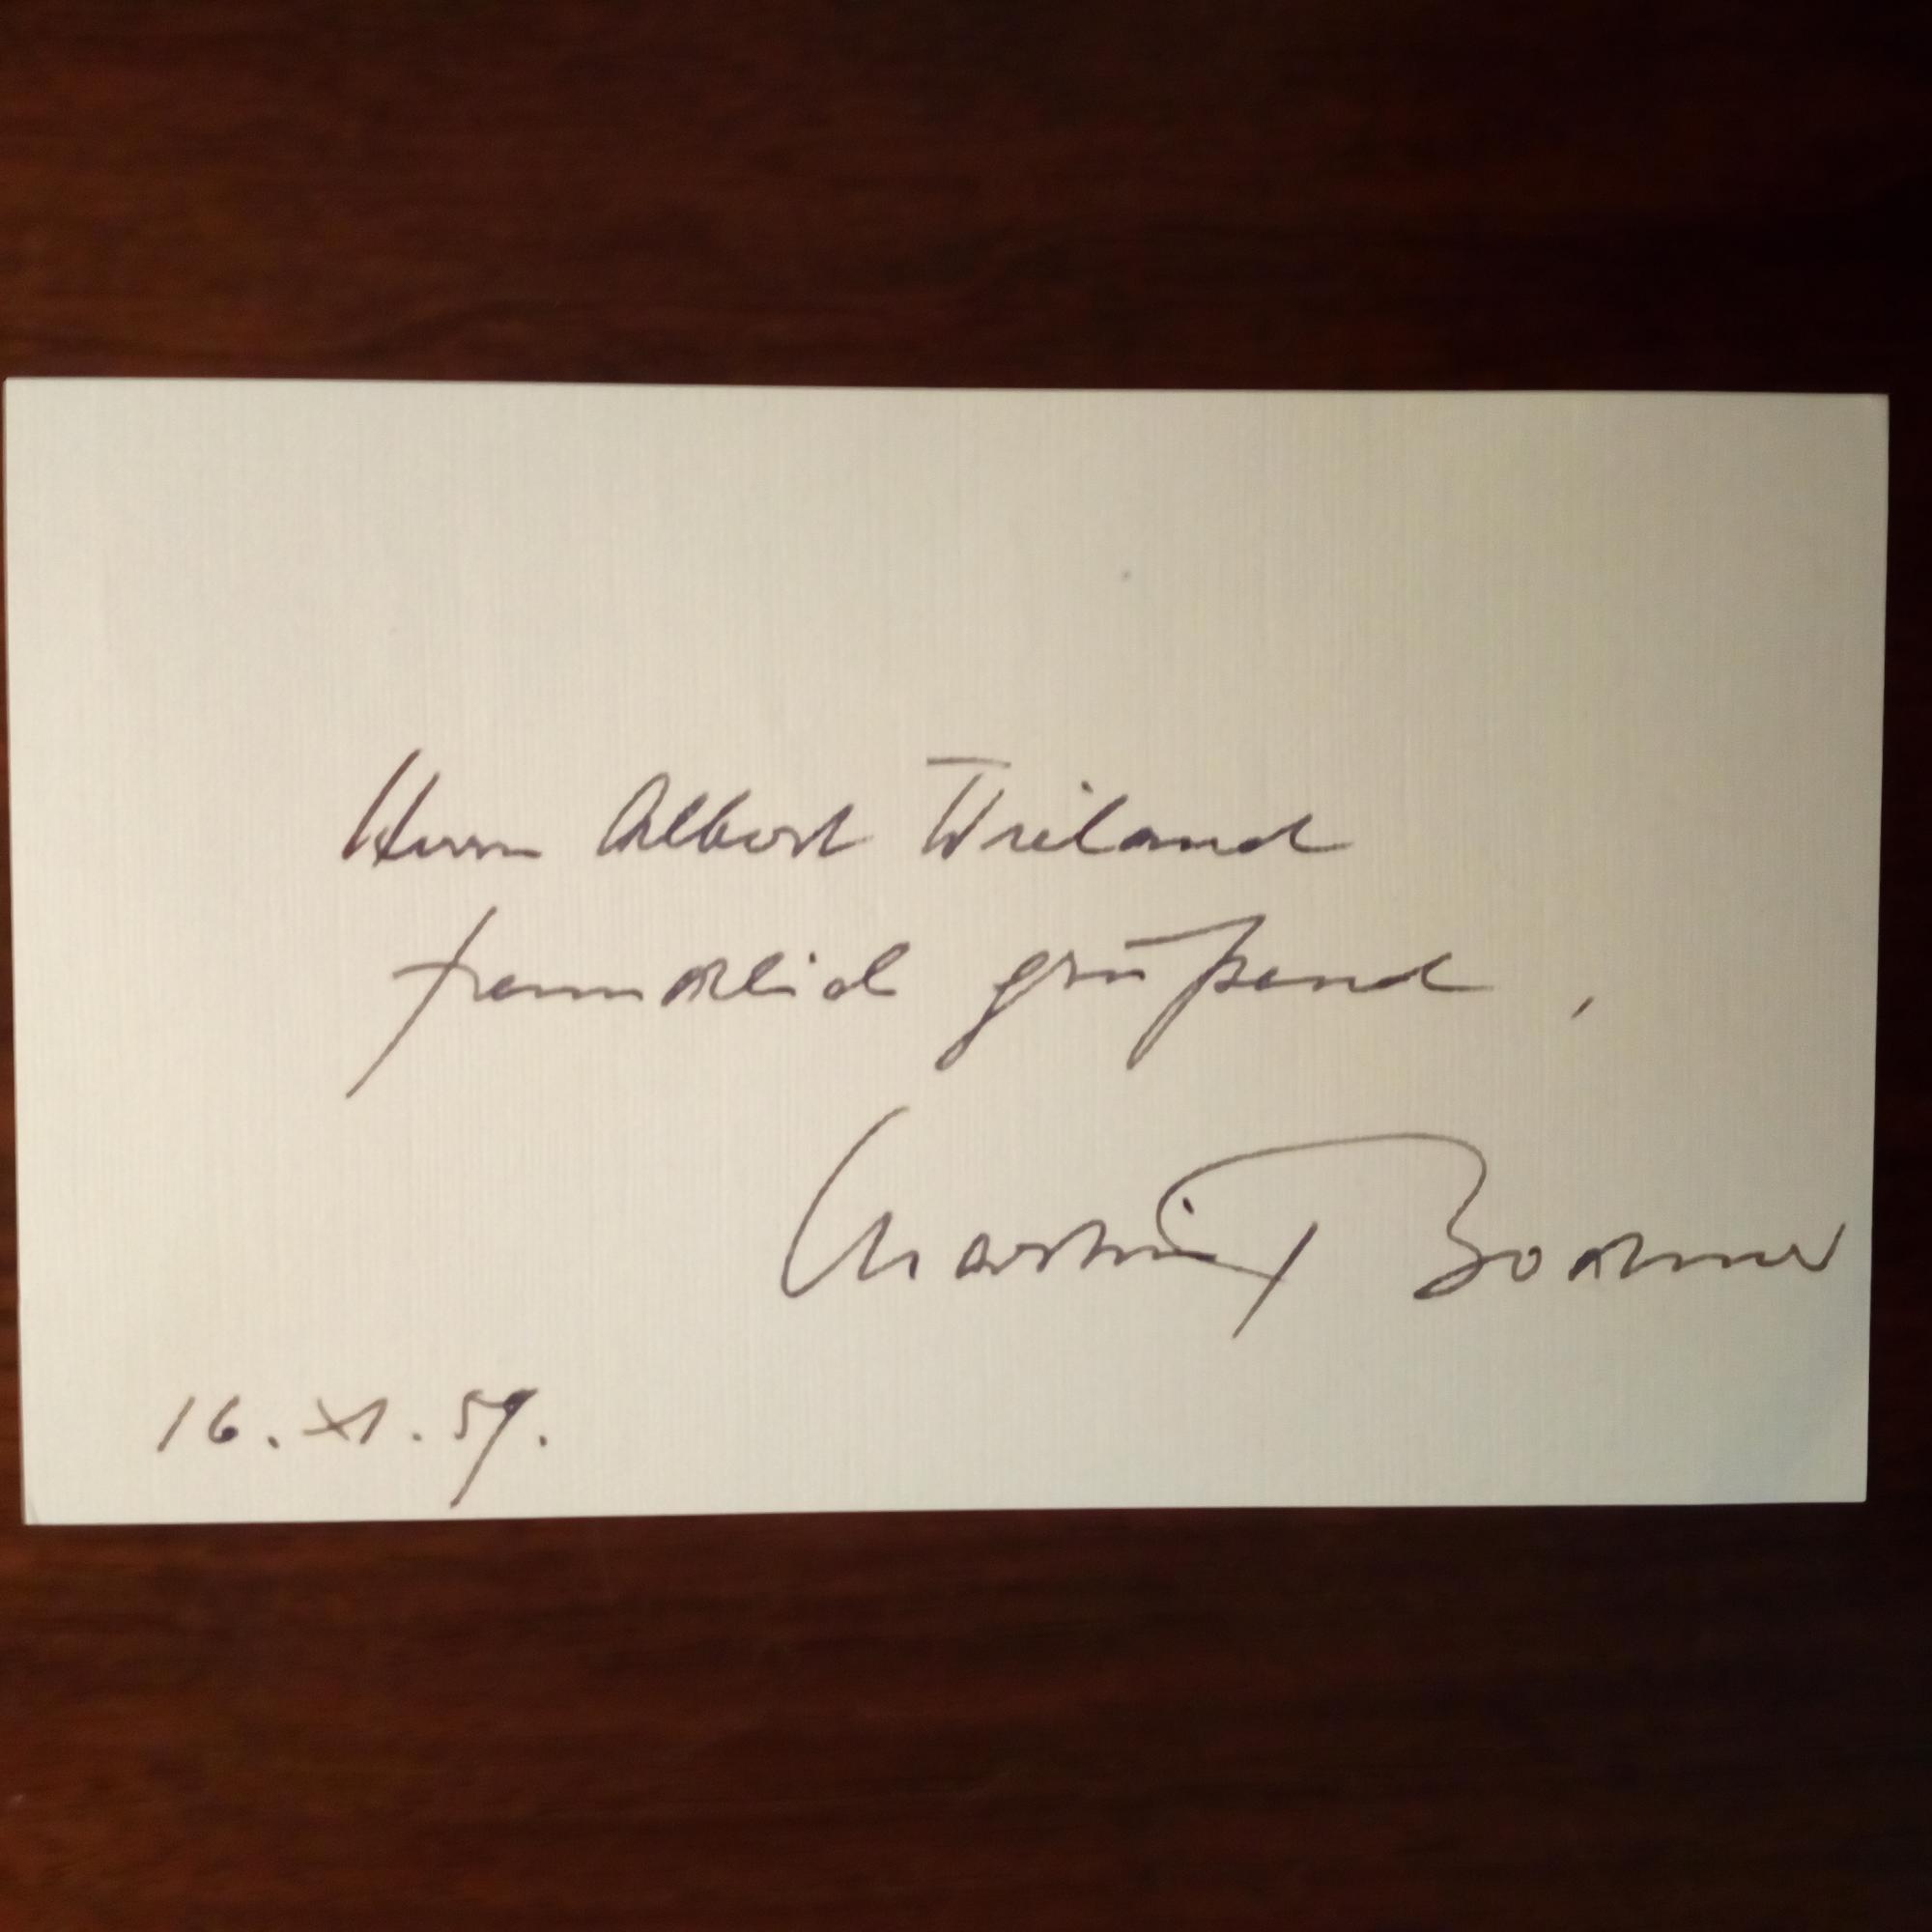 Herrn Albert Wieland
freundlich grüßend,
Martin Bodmer
16. XI. 59.